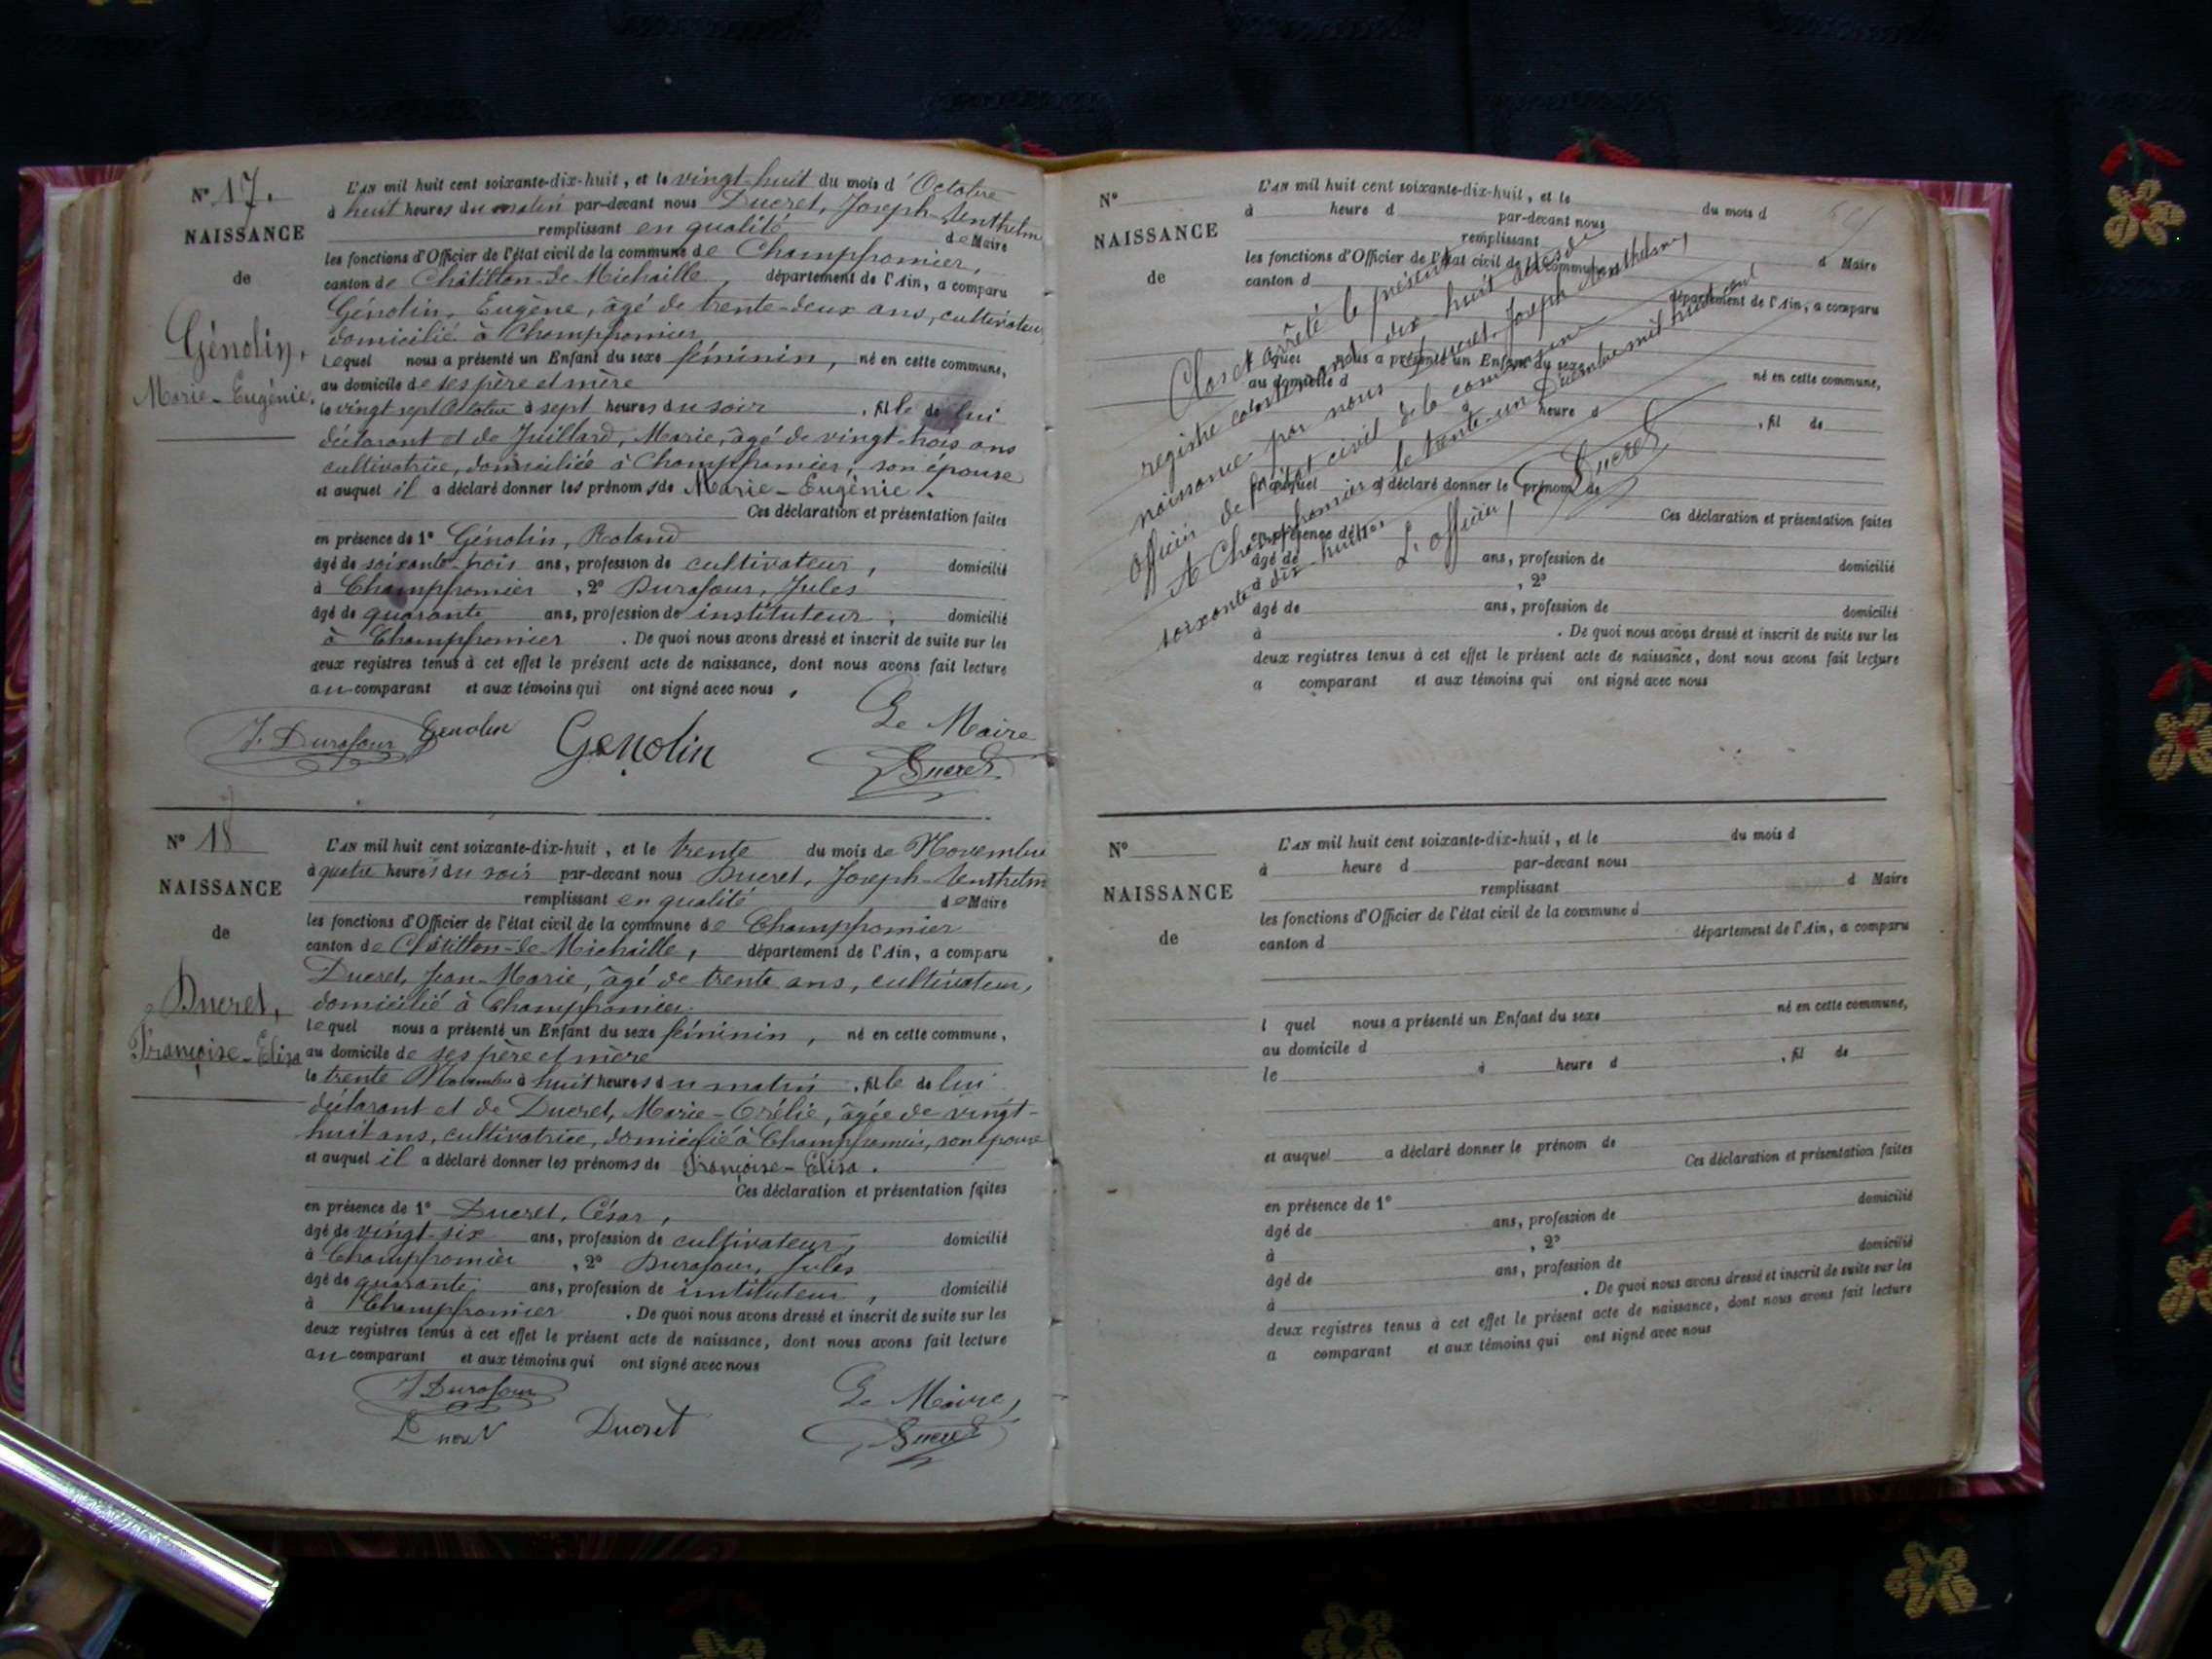 N° 17.
NAISSANCE
de
Génolin,
Marie-Eugénie,
L'AN mil huit cent soixante-dix-huit, et le vingt-huit du mois d'Octobre
à huit heures du matin par-devant nous Ducret, Joseph-Anthelme
remplissant en qualité de Maire
les fonctions d'Officier de l'état civil de la commune de Champfromier,
canton de Châtillon-de-Michaille, département de l'Ain, a comparu
Génolin, Eugène, âgé de trente-deux ans, cultivateur
domicilié à Champfromier
lequel nous a présenté un Enfant du sexe féminin, né en cette commune,
au domicile de ses père et mère
le vingt sept Octobre à sept heures du soir, fille de lui
déclarant et de Juillard, Marie, âgé de vingt-trois ans
cultivatrice, domiciliée à Champfromier, son épouse
et auquel il a déclaré donner les prénoms de Marie-Eugénie.
Ces déclaration et présentation faites
en présence de 1° Génolin, Roland
âgé de soixante-trois ans, profession de cultivateur, domicilié
à Champfromier, 2° Durafour, Jules
âgé de quarante ans, profession de instituteur, domicilié
à Champfromier. De quoi nous avons dressé et inscrit de suite sur les
deux registres tenus à cet effet le présent acte de naissance, dont nous avons fait lecture
au comparant et aux témoins qui ont signé avec nous.
Le Maire
J. Durafour Genolin Genolin Ducret
N° 18
NAISSANCE
de
Ducret,
Françoise-Elisa
L'AN mil huit cent soixante-dix-huit, et le trente du mois de Novembre
à quatre heures du soir par-devant nous Ducret, Joseph-Anthelme
remplissant en qualité de Maire
les fonctions d'Officier de l'état civil de la commune de Champfromier
canton de Châtillon-de-Michaille, département de l'Ain, a comparu
Ducret, Jean-Marie, âgé de trente ans, cultivateur,
domicilié à Champfromier.
lequel nous a présenté un Enfant du sexe féminin, né en cette commune,
au domicile de ses père et mère
le trente Novembre à huit heures du matin, fille de lui
déclarant et de Ducret, Marie-Orélie, âgée de vingt-
huit ans, cultivatrice, domiciliée à Champfromier, son épouse
et auquel il a déclaré donner les prénoms de Françoise-Elisa.
Ces déclaration et présentation faites
en présence de 1° Ducret, César,
âgé de vingt-six ans, profession de cultivateur, domicilié
à Champfromier, 2° Durafour, Jules
âgé de quarante ans, profession de instituteur, domicilié
à Champfromier. De quoi nous avons dressé et inscrit de suite sur les
deux registres tenus à cet effet le présent acte de naissance, dont nous avons fait lecture
au comparant et aux témoins qui ont signé avec nous
J Durafour Le Maire,
Ducret Ducret Ducret
N°
NAISSANCE
de
L'AN mil huit cent soixante-dix-huit, et le du mois d
à heure d par-devant nous
remplissant d Maire
les fonctions d'Officier de l'état civil de la commune d
canton d département de l'Ain, a comparu
l quel nous a présenté un Enfant du sexe né en cette commune,
au domicile d
à heure d, fil de
et auquel a déclaré donner le prénom de
Ces déclaration et présentation faites
en présence de 1°
âgé de ans, profession de domicilié
à, 2°
âgé de ans, profession de domicilié
à. De quoi nous avons dressé et inscrit de suite sur les
deux registres tenus à cet effet le présent acte de naissance, dont nous avons fait lecture
a comparant et aux témoins qui ont signé avec nous
Clos et arrêté le présent
registre contenant dix-huit actes de
naissance par nous Ducret, Joseph Anthelme
officier de l'état civil de la commune
A Champfromier, le trente-un Décembre mil huit cent
soixante-dix-huit.
L'officier,
Ducret
N°
NAISSANCE
de
L'AN mil huit cent soixante-dix-huit, et le du mois d
à heure d par-devant nous
remplissant d Maire
les fonctions d'Officier de l'état civil de la commune d
canton d département de l'Ain, a comparu
l quel nous a présenté un Enfant du sexe né en cette commune,
au domicile d
le à heure d, fil de
et auquel a déclaré donner le prénom de
Ces déclaration et présentation faites
en présence de 1°
âgé de ans, profession de domicilié
à, 2°
âgé de ans, profession de domicilié
à. De quoi nous avons dressé et inscrit de suite sur les
deux registres tenus à cet effet le présent acte de naissance, dont nous avons fait lecture
a comparant et aux témoins qui ont signé avec nous